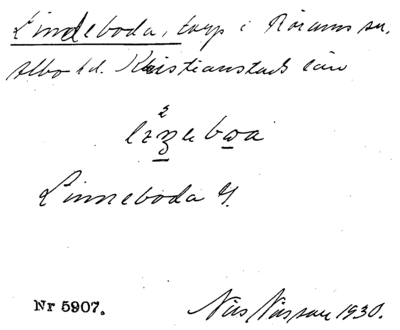 Lindeboda, torp i Rörums sn.
Albo hd. Kristianstads län
Linneboda G.
Nr 5907. Nils Nilsson 1930.